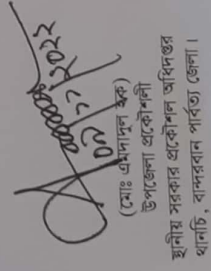 ০৮/১১/২০২২
(মোঃ এমদাদুল হক)
উপজেলা প্রকৌশলী
স্থানীয় সরকার প্রকৌশল অধিদপ্তর
থানচি, বান্দরবান পার্বত্য জেলা।